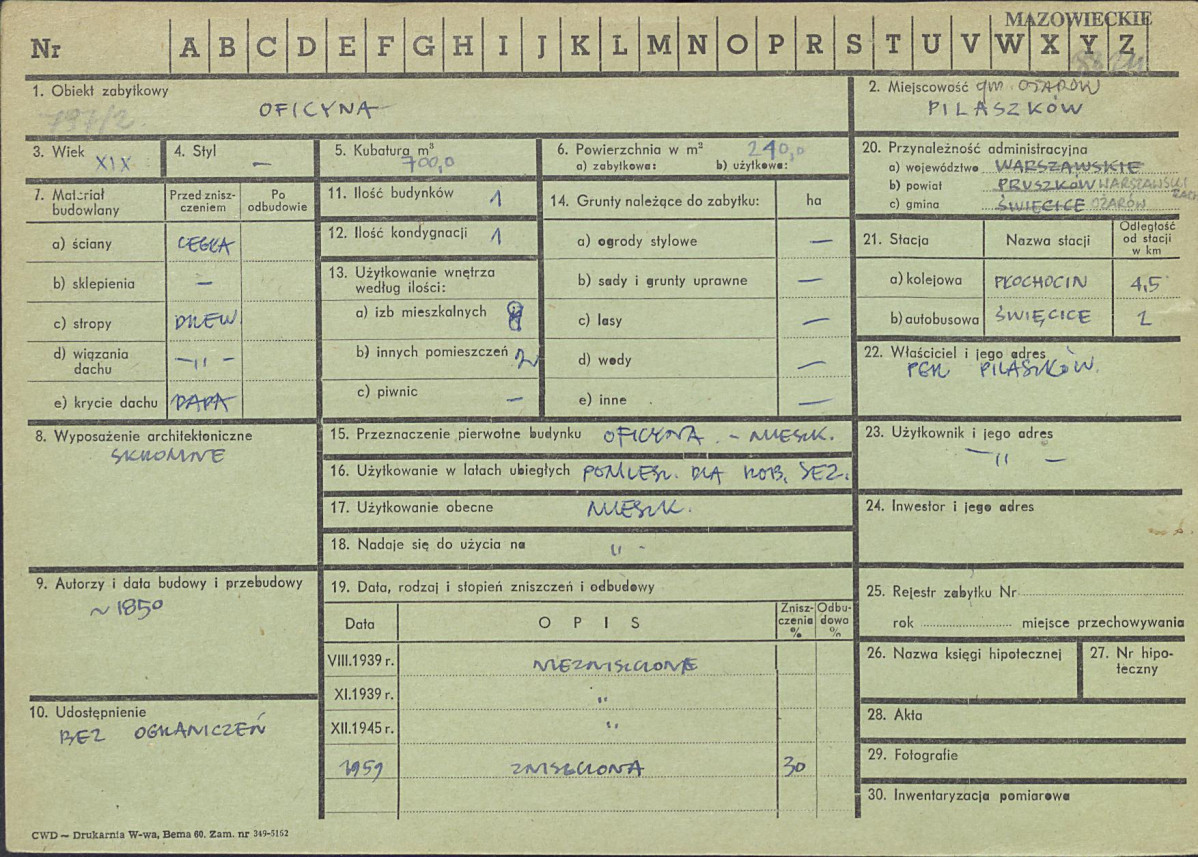 MAZOWIECKIE
Nr A B C D E F G H I J K L M N O P R S T U V W X Y Z
1. Obiekt zabytkowy
797/2.
OFICYNA
2. Miejscowość gm. OŻARÓW
PILASZKÓW
3. Wiek XIX
4. Styl —
5. Kubatura m³
700,0
6. Powierzchnia w m² 240,0
a) zabytkowa: b) użytkowa:
7. Materiał budowlany
Przed zniszczeniem
Po odbudowie
a) ściany CEGŁA
b) sklepienia —
c) stropy DREW.
d) wiązania dachu —„—
e) krycie dachu PAPA
8. Wyposażenie architektoniczne
SKROMNE
9. Autorzy i data budowy i przebudowy
~ 1850
10. Udostępnienie
BEZ OGRANICZEŃ
11. Ilość budynków 1
12. Ilość kondygnacji 1
13. Użytkowanie wnętrza
według ilości:
a) izb mieszkalnych
b) innych pomieszczeń 2
c) piwnic —
14. Grunty należące do zabytku: ha
a) ogrody stylowe —
b) sady i grunty uprawne —
c) lasy —
d) wody —
e) inne —
15. Przeznaczenie pierwotne budynku OFICYNA. – MIESZK.
16. Użytkowanie w latach ubiegłych POMIESZ. DLA ROB. SEZ.
17. Użytkowanie obecne MIESZK.
18. Nadaje się do użycia na „ -
19. Data, rodzaj i stopień zniszczeń i odbudowy
Data O P I S Zniszczenia % Odbudowa %
VIII.1939 r. NIEZNISZCZONE
XI.1939 r. „
XII.1945 r. „
1959 ZNISZCZONA 30
20. Przynależność administracyjna
a) województwo WARSZAWSKIE
b) powiat PRUSZKÓW WARSZAWSKI ZACH
c) gmina ŚWIĘCICE OŻARÓW
21. Stacja Nazwa stacji Odległość od stacji w km
a) kolejowa PŁOCHOCIN 4,5
b) autobusowa ŚWIĘCICE 2
22. Właściciel i jego adres
PGR PILASZKÓW.
23. Użytkownik i jego adres
—„—
24. Inwestor i jego adres
25. Rejestr zabytku Nr
rok miejsce przechowywania
26. Nazwa księgi hipotecznej
27. Nr hipoteczny
28. Akta
29. Fotografie
30. Inwentaryzacja pomiarowa
CWD — Drukarnia W-wa, Bema 60. Zam. nr 349-5162